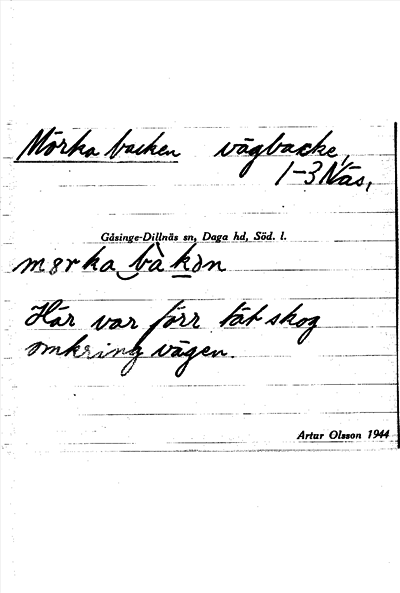 Mörka backen vägbacke,
1-3 Näs,
Gåsinge-Dillnäs sn, Daga hd, Söd. l.
mørka bàkən
Här var förr tät skog
omkring vägen.
Artur Olsson 1944